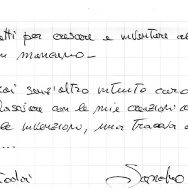 etti per creare e inventare al
n mancano -
poi senz'altro intento caro
lasciare con le mie creazioni e
le invenzioni, una traccia d
....
Sandro